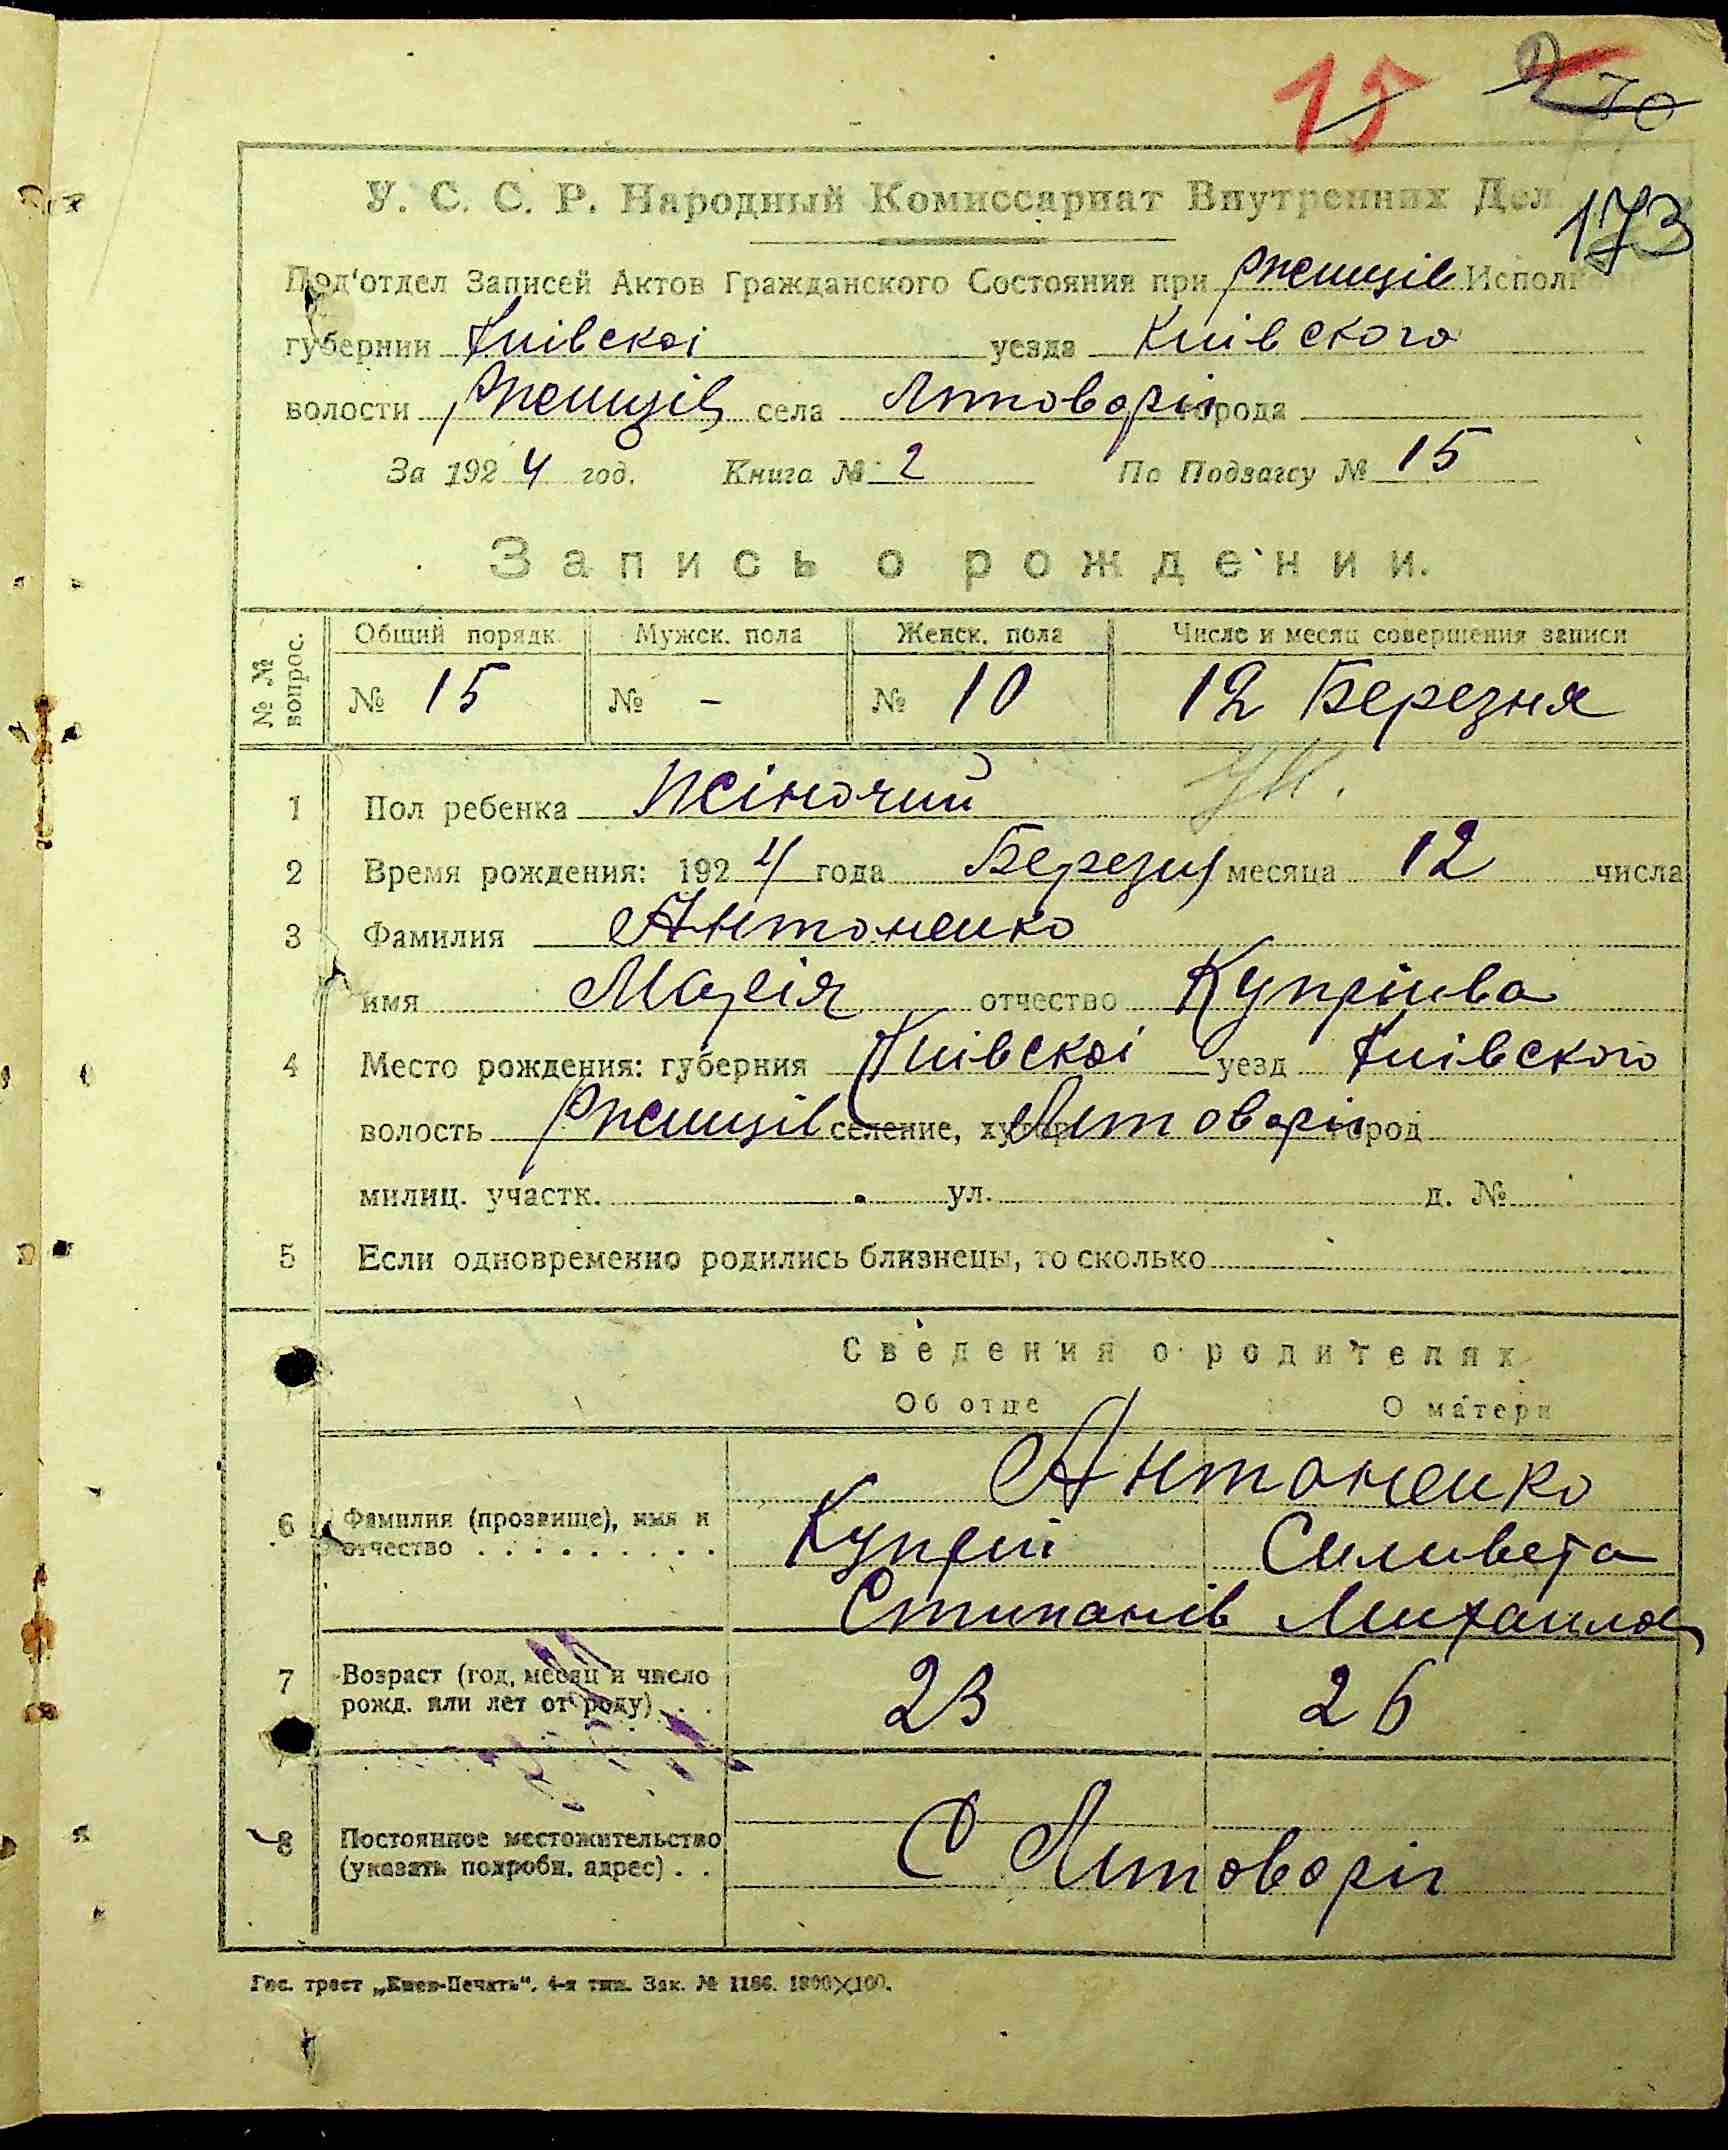 15 270
У. С. С. Р. Народный Комиссариат Внутренних Дел
173
Под'отдел Записей Актов Гражданского Состояния при Ржищів Исполк
губернии Київскоі уезда Київского
волости Ржищів села Янтовори города
За 1924 год. Книга № 2 По Подзагсу № 15
Запись о рождении.
№ № вопрос. Общий порядк. Мужск. пола Женск. пола Число и месяц совершения записи
№ 15 № - № 10 12 Березня
1 Пол ребенка Жіночий
2 Время рождения: 1924 года Березня месяца 12 числа
3 Фамилия Антоненко
имя Марія отчество Купріива
4 Место рождения: губерния Київскоі уезд Київского
волость Ржищів селение, хутор город
милиц. участк. ул. д. №
5 Если одновременно родились близнецы, то сколько
Сведения о родителях
Об отце О матери
Антоненко
6 Фамилия (прозвище), имя и
отчество Купрій Силивета
Стипанів Михаилов
7 Возраст (год, месяц и число
рожд. или лет от роду) 23 26
8 Постоянное местожительство
(указать подробн. адрес) С
Гос. трест „Киев-Печать“. 4-я тип. Зак. № 1186. 1800×100.